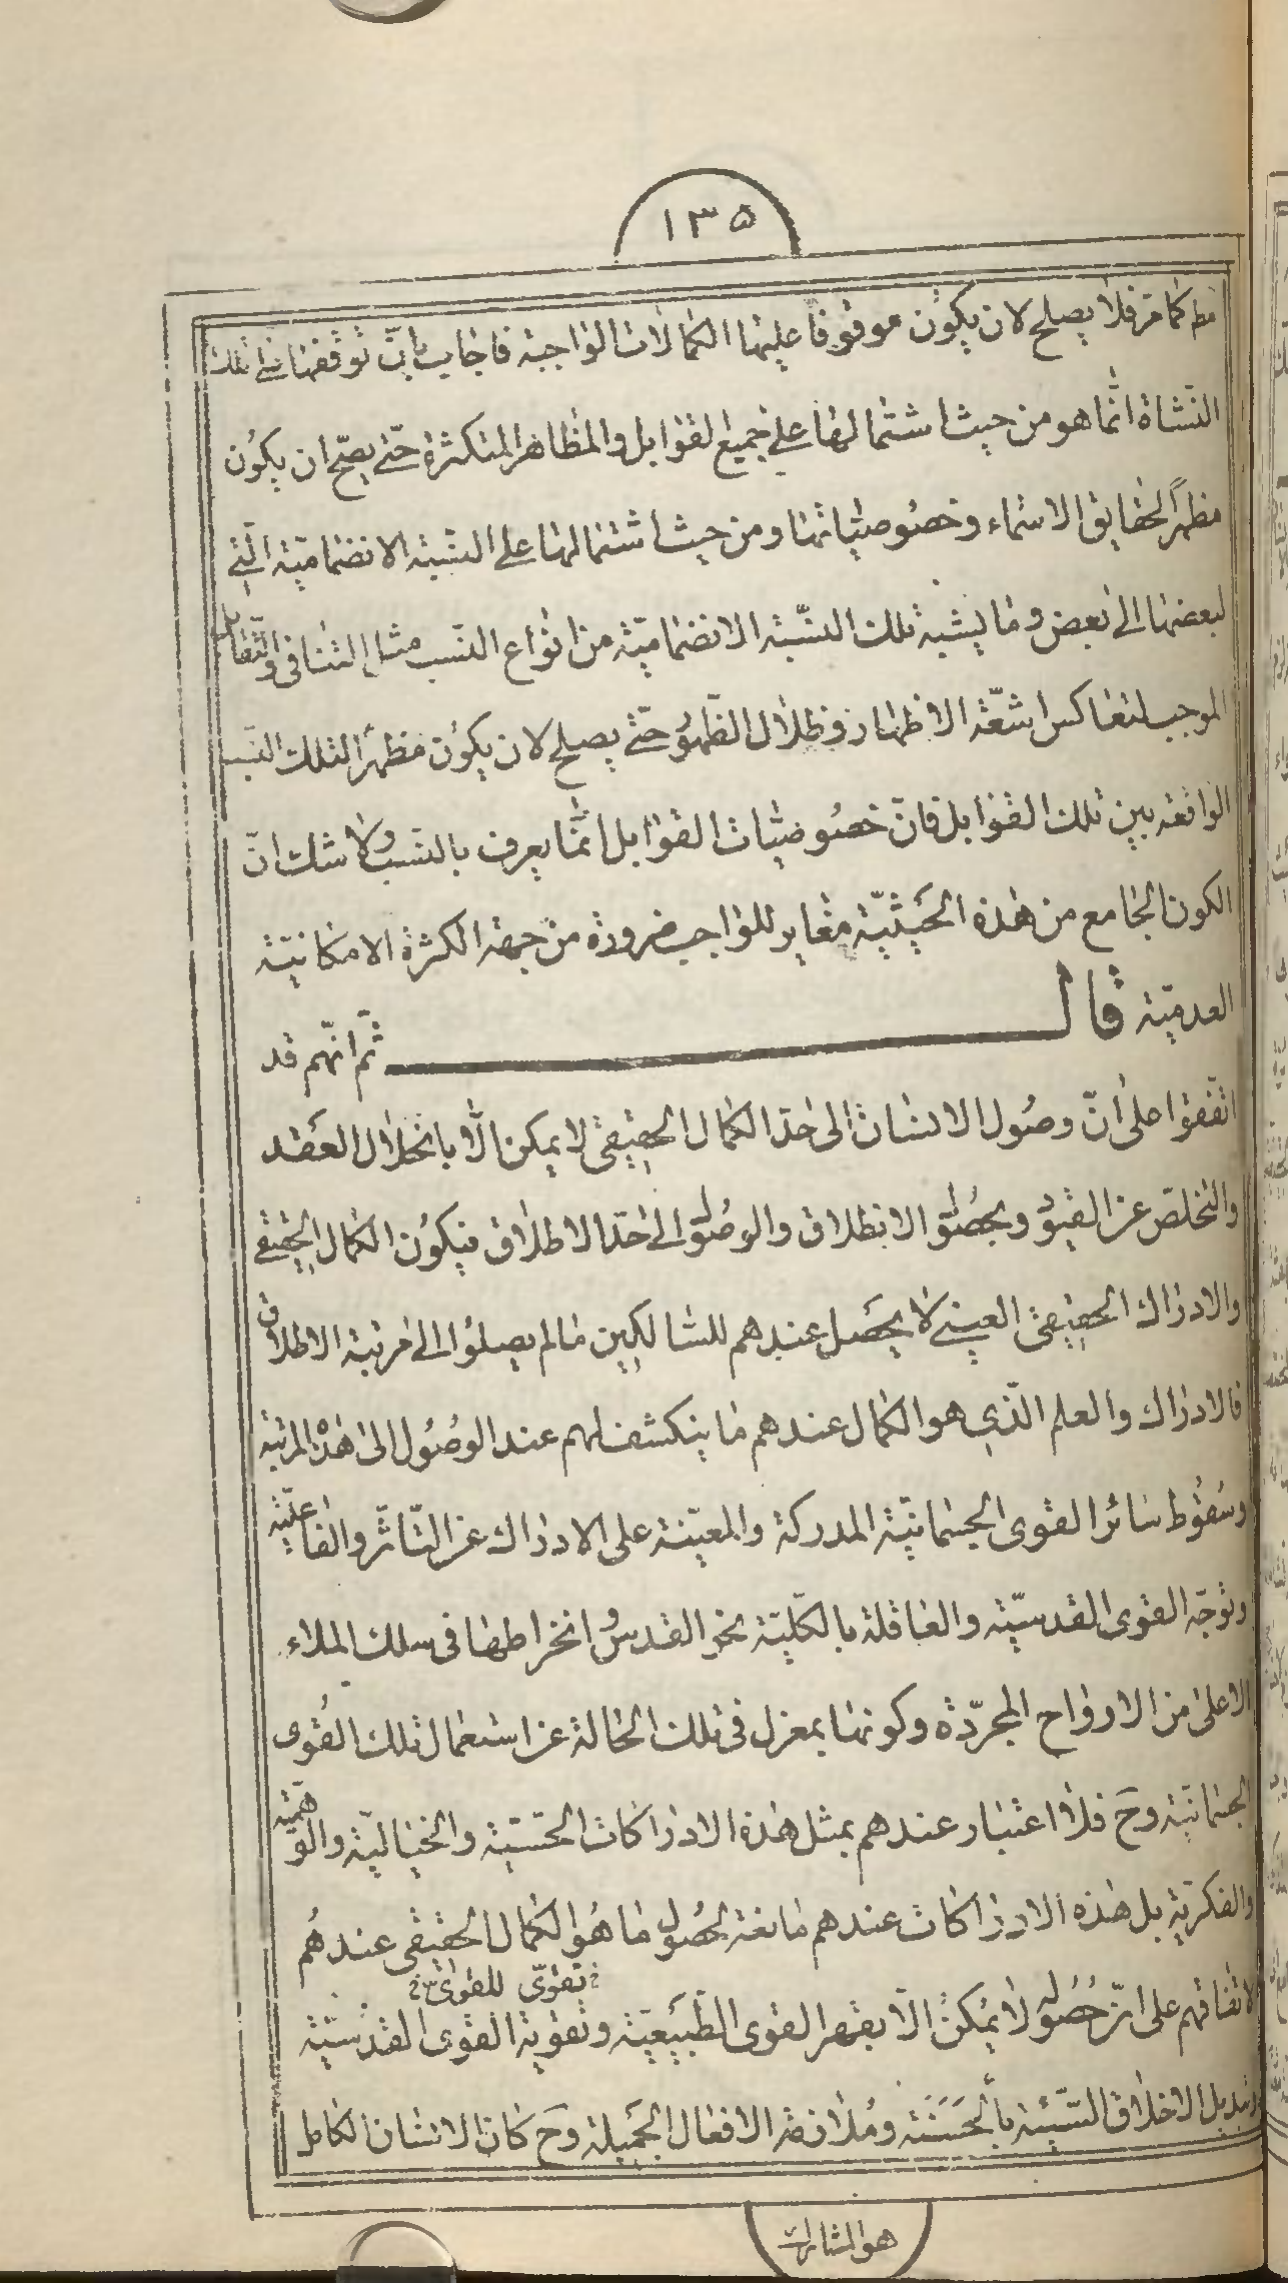 ١٣٥
مط كما مر فلا يصلح لان يكون موقوفا عليها الكمالات الواجبة فاجاب بان توقفها على تلك
النشاة انما هو من حيث اشتمالها على جميع القوابل والمظاهر المتكثرة حتى يصح ان يكون
مظهرا لحقايق الاسماء وخصوصياتها ومن حيث اشتمالها على النسبة الانضمامية التى
لبعضها الى بعض وما يشبه تلك النسبة الانضمامية من انواع النسب مثل التنافى والتقابل
الموجب لتعاكس اشعة الاظهار وظلال الظهور حتى يصلح لان يكون مظهرا لتلك النسب
الواقعة بين تلك القوابل فان خصوصيات القوابل انما يعرف بالنسب ولا شك ان
الكون الجامع من هذه الحيثية مغاير للواجب ضرورة من جهة الكثرة الامكانية
العدمية قال ثم انهم قد
اتفقوا على ان وصول الانسان الى حد الكمال الحقيقى لا يمكن الا بانحلال العقد
والتخلص عن القيود وبحصول الانطلاق والوصول الى حد الاطلاق فيكون الكمال الحقيقى
والادراك الحقيقى العينى لا يحصل عندهم للسالكين ما لم يصلوا الى مرتبة الاطلاق
فالادراك والعلم الذى هو الكمال عندهم ما ينكشف لهم عند الوصول الى هذه المرتبة
وسقوط سائر القوى الجسمانية المدركة والمعينة على الادراك عن التاثر والفاعلية
وتوجه القوى القدسية والعاقلة بالكلية نحو القدس وانخراطها فى سلك الملاء
الاعلى من الارواح المجردة وكونها بمعزل فى تلك الحالة عن استعمال تلك القوى
الجسمانية وح فلا اعتبار عندهم بمثل هذه الادراكات الحسية والخيالية والوهمية
والفكرية بل هذه الادراكات عندهم مانعة لحصول ما هو الكمال الحقيقى عندهم
تقوى للقوى
لاتفاقهم على ان حصوله لا يمكن الا بقهر القوى الطبيعية وتقوية القوى القدسية
وتبديل الاخلاق السيئة بالحسنة وملازمة الافعال الجميلة وح كان الانسان الكامل
هو المشار